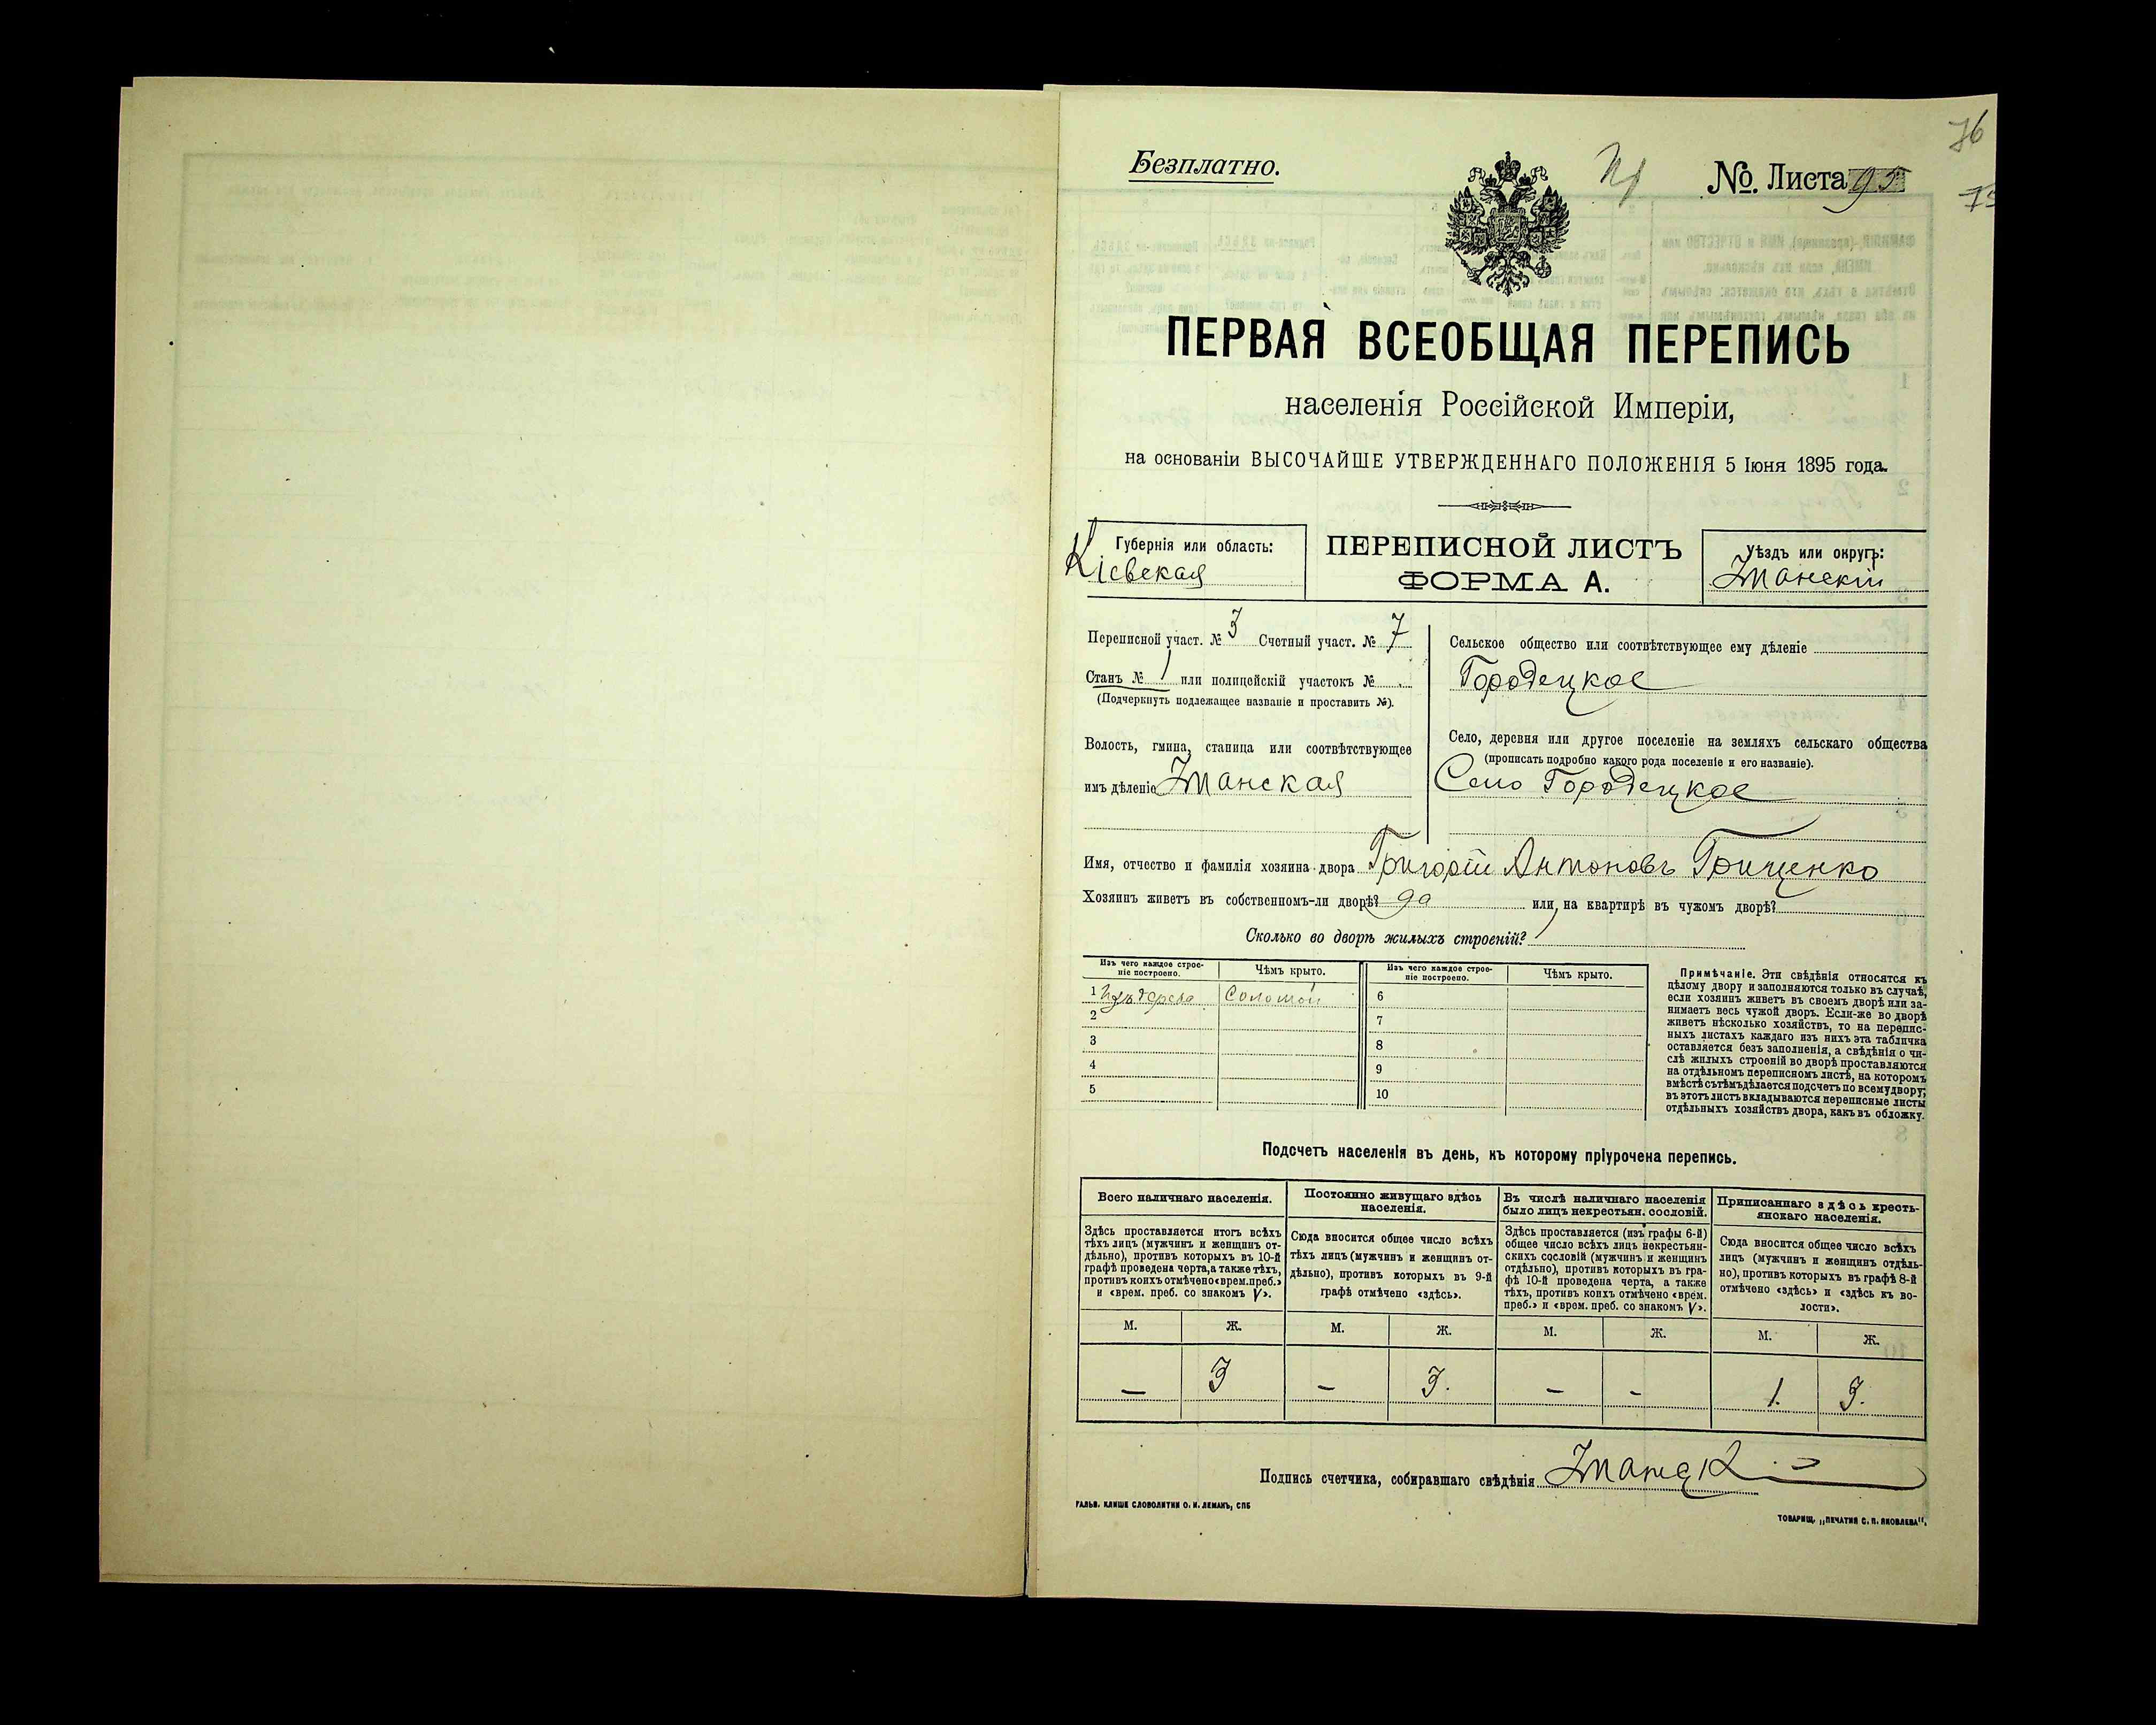 76
Безплатно.
№. Листа 95
75
ПЕРВАЯ ВСЕОБЩАЯ ПЕРЕПИСЬ
населенія Россійской Имперіи,
на основаніи ВЫСОЧАЙШЕ УТВЕРЖДЕННАГО ПОЛОЖЕНІЯ 5 Іюня 1895 года.
Губернія или область:
Кіевская
ПЕРЕПИСНОЙ ЛИСТЪ
ФОРМА А.
Уѣздъ или округъ:
Уманскій
Переписной участ. № 3 Счетный участ. № 7
Станъ № 1 или полицейскій участокъ №
(Подчеркнуть подлежащее названіе и проставить №).
Волость, гмина, станица или соотвѣтствующее
имъ дѣленіе Уманская
Сельское общество или соотвѣтствующее ему дѣленіе
Городецкое
Село, деревня или другое поселеніе на земляхъ сельскаго общества
(прописать подробно какого рода поселеніе и его названіе).
Село Городецкое
Имя, отчество и фамилія хозяина двора Григорій Антоновъ Грищенко
Хозяинъ живетъ въ собственномъ-ли дворѣ? да или на квартирѣ въ чужомъ дворѣ?
Сколько во дворѣ жилыхъ строеній? 1
Изъ чего каждое строе-
ніе построено.
Чѣмъ крыто.
Изъ чего каждое строе-
ніе построено.
Чѣмъ крыто.
1 Изъ дерева Соломой
2
3
4
5
6
7
8
9
10
Примѣчаніе. Эти свѣдѣнія относятся къ
цѣлому двору и заполняются только въ случаѣ,
если хозяинъ живетъ въ своемъ дворѣ или за-
нимаетъ весь чужой дворъ. Если-же во дворѣ
живетъ нѣсколько хозяйствъ, то на перепис-
ныхъ листахъ каждаго изъ нихъ эта табличка
оставляется безъ заполненія, а свѣдѣнія о чи-
слѣ жилыхъ строеній во дворѣ проставляются
на отдѣльномъ переписномъ листѣ, на которомъ
вмѣстѣ съ тѣмъ дѣлается подсчетъ по всему двору;
въ этотъ листъ вкладываются переписные листы
отдѣльныхъ хозяйствъ двора, какъ въ обложку.
Подсчетъ населенія въ день, къ которому пріурочена перепись.
Всего наличнаго населенія.
Здѣсь проставляется итогъ всѣхъ
тѣхъ лицъ (мужчинъ и женщинъ от-
дѣльно), противъ которыхъ въ 10-й
графѣ проведена черта, а также тѣхъ,
противъ коихъ отмѣчено «врем. преб.»
и «врем. преб. со знакомъ V».
Постоянно живущаго здѣсь
населенія.
Сюда вносится общее число всѣхъ
тѣхъ лицъ (мужчинъ и женщинъ от-
дѣльно), противъ которыхъ въ 9-й
графѣ отмѣчено «здѣсь».
Въ числѣ наличнаго населенія
было лицъ некрестьян. сословій.
Здѣсь проставляется (изъ графы 6-й)
общее число всѣхъ лицъ некрестьян-
скихъ сословій (мужчинъ и женщинъ
отдѣльно), противъ которыхъ въ гра-
фѣ 10-й проведена черта, а также
тѣхъ, противъ коихъ отмѣчено «врем.
преб.» и «врем. преб. со знакомъ V».
Приписаннаго здѣсь кресть-
янскаго населенія.
Сюда вносится общее число всѣхъ
лицъ (мужчинъ и женщинъ отдѣль-
но), противъ которыхъ въ графѣ 8-й
отмѣчено «здѣсь» и «здѣсь къ во-
лости».
М. Ж. М. Ж. М. Ж. М. Ж.
— 3 — 3. — - 1. 3.
Подпись счетчика, собиравшаго свѣдѣнія
ГАЛЬВ. КЛИШЕ СЛОВОЛИТНИ О. И. ЛЕМАНЪ, СПБ
ТОВАРИЩ. „ПЕЧАТНЯ С. П. ЯКОВЛЕВА“.